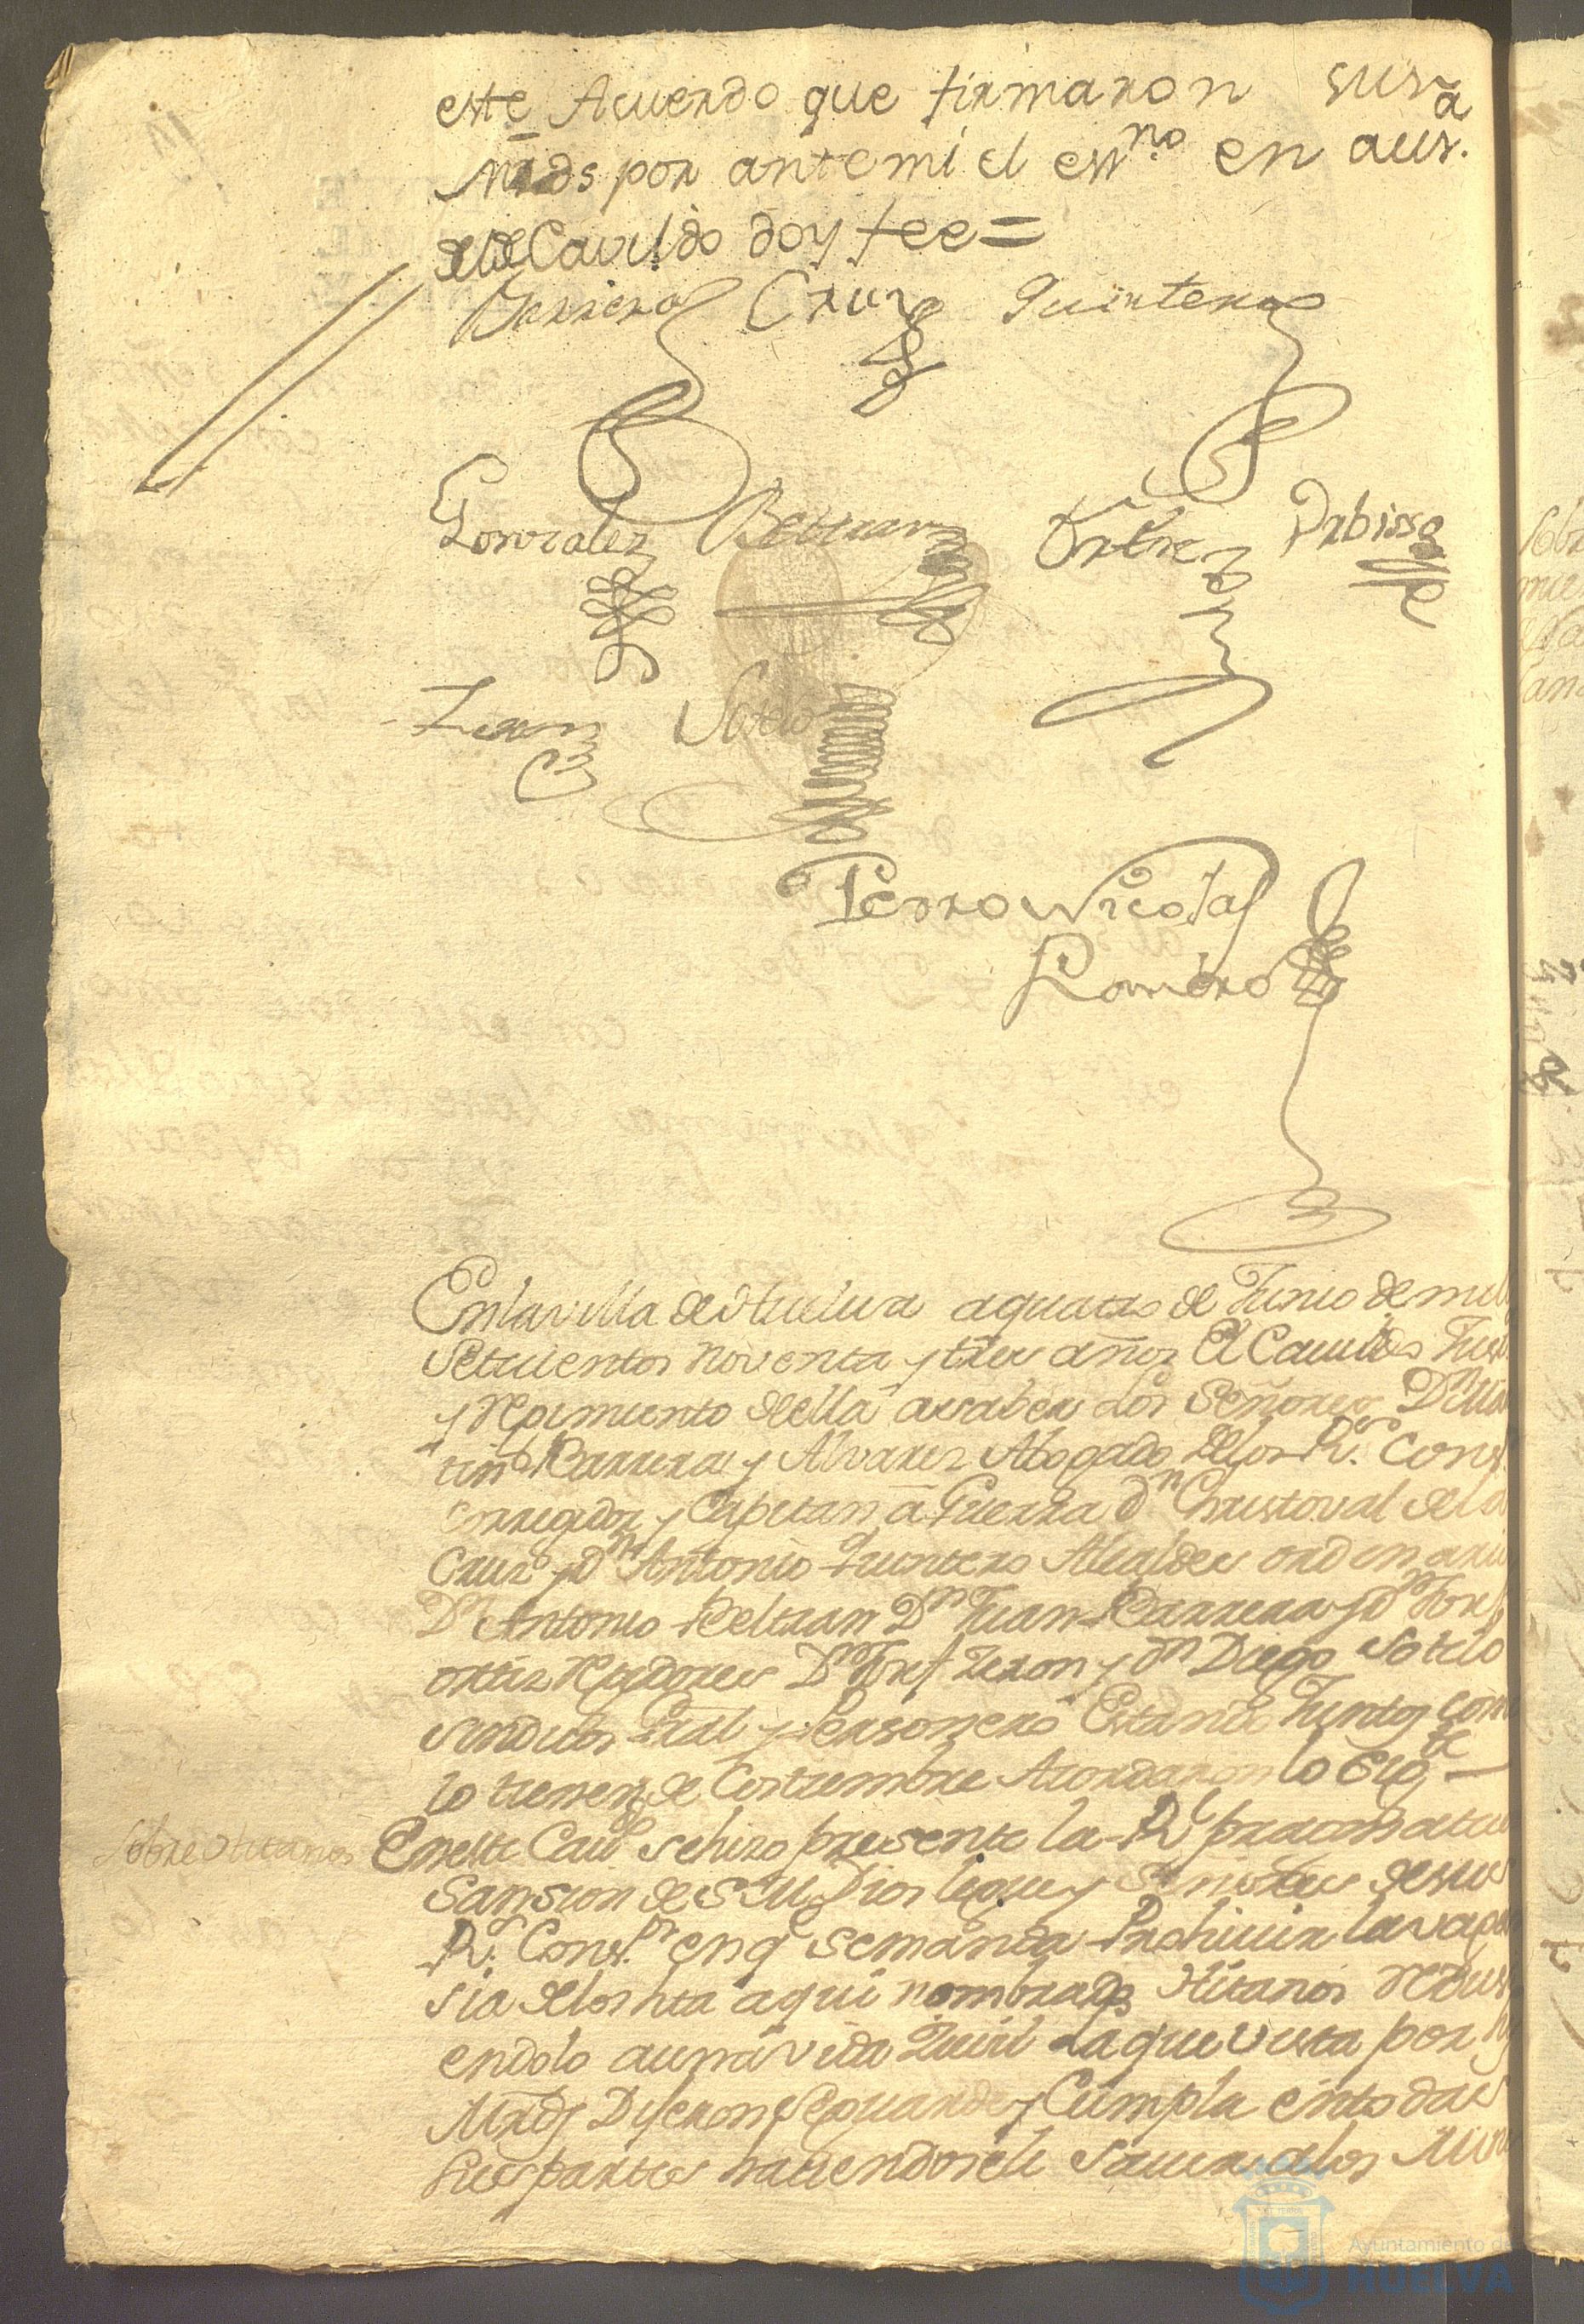 este Acuerdo que firmaron sus
mrds por ante mi el essno en aus.a
del de Cavildo doy fee =
Barrera Cruz Quintero
Gonzalez Beltran Ortiz Rabisso
Zeron Sotelo
Pedro Nicolas
Romero
En la villa de Huelva a quatro de Junio de mil
Setecientos noventa y tres años El Cavildo Just
y Reximiento de ella a saber los Señores Dn Mar
tin Barrera y Alvarez Abogado de los Rs. Cons.
Corregidor y Capitan a Guerra dn Christoval de la
Cruz y dn Antonio Quintero Alcaldes ordinario
Dn Antonio Beltran Dn Juan Barrera y dn Josef
ortiz Rejidores Dn Josef Zeron y dn Diego Sotelo
sindicos Gral y Personero Estando Juntos com
lo tienen de Costumbre Acordaron lo sigte
Sobre Hitanos
En este Cavdo se hizo presente la Rl pracmatica
Sansion de S. M. Dios le gue y Señores de sus
Rs. Consps en q se manda Prohivir la vagan
sia de los hta aqui nombrados Hitanos redusi
endolo a una vida Zivil La que vista por sus
Mrds Dijeron se guarde y Cumpla en todas
sus partes haciendosele saver a los Min
Ayuntamiento de
HUELVA